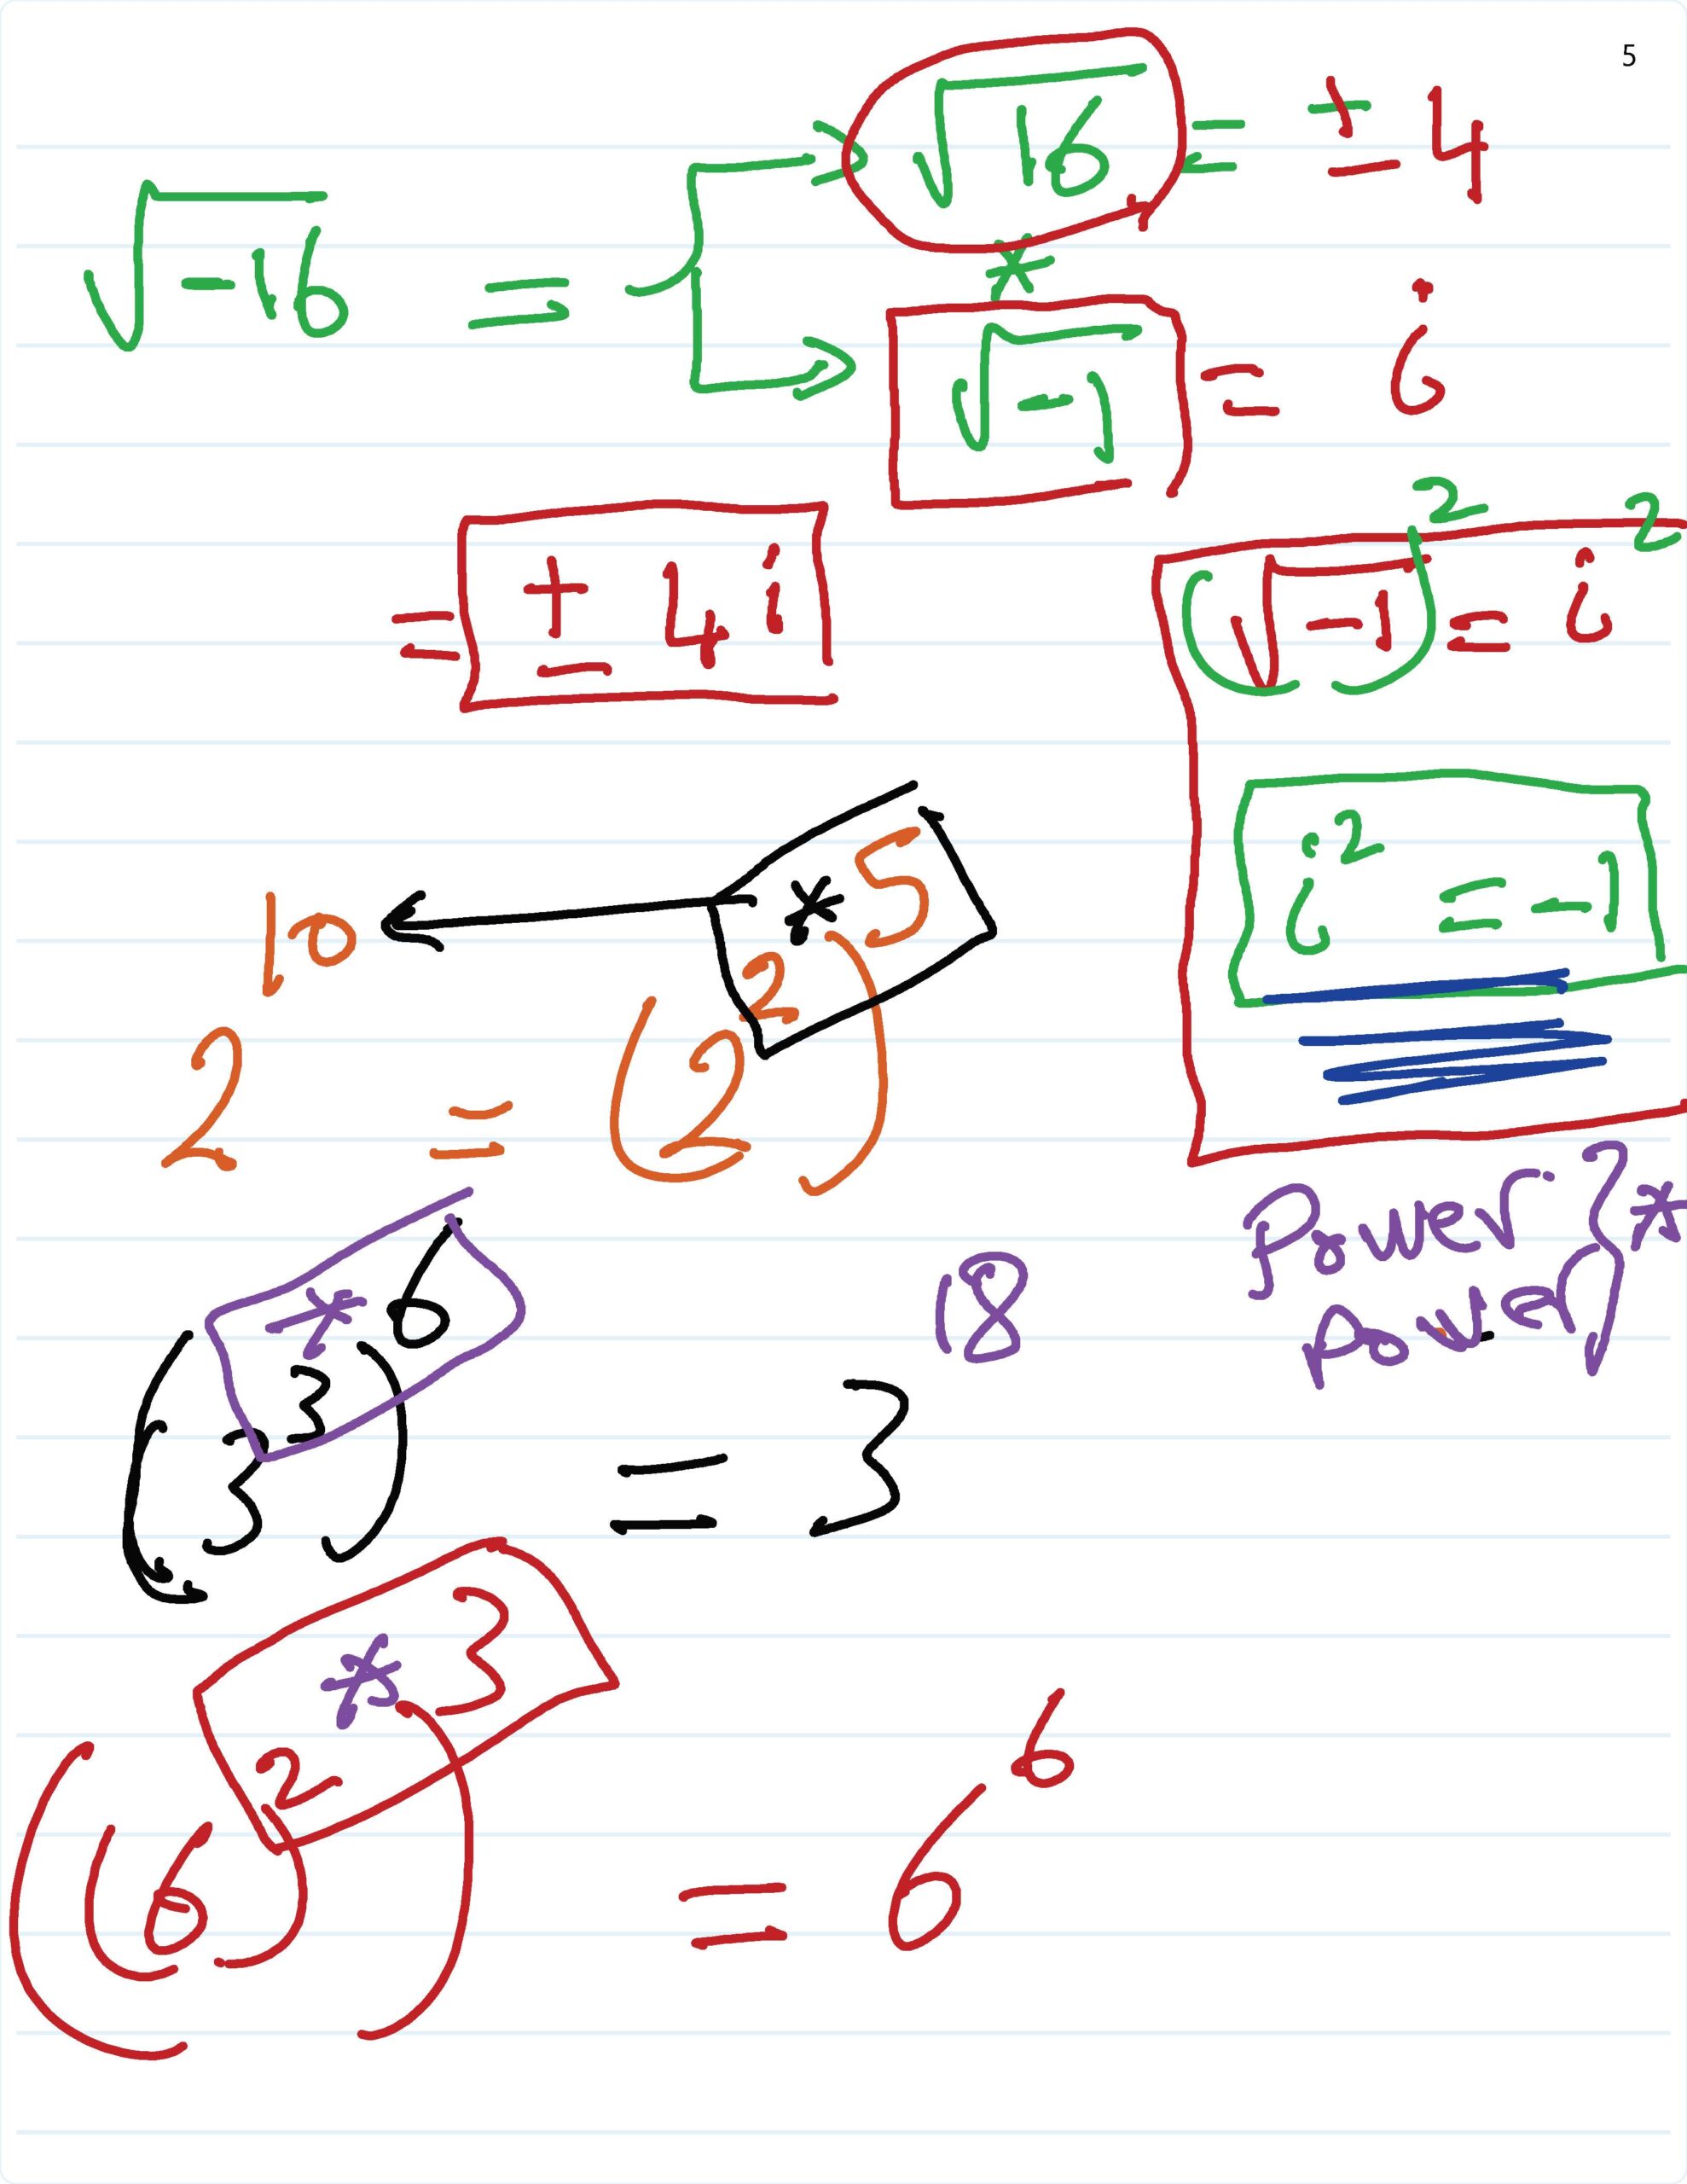 5
√-16 = { √16 = ± 4
*
√-1 = i
= ± 4i
(√-1)² = i²
i² = -1
2¹⁰ = (2²)*⁵
Power } *
Power
(3³)*⁶ = 3¹⁸
((6)²)*³ = 6⁶